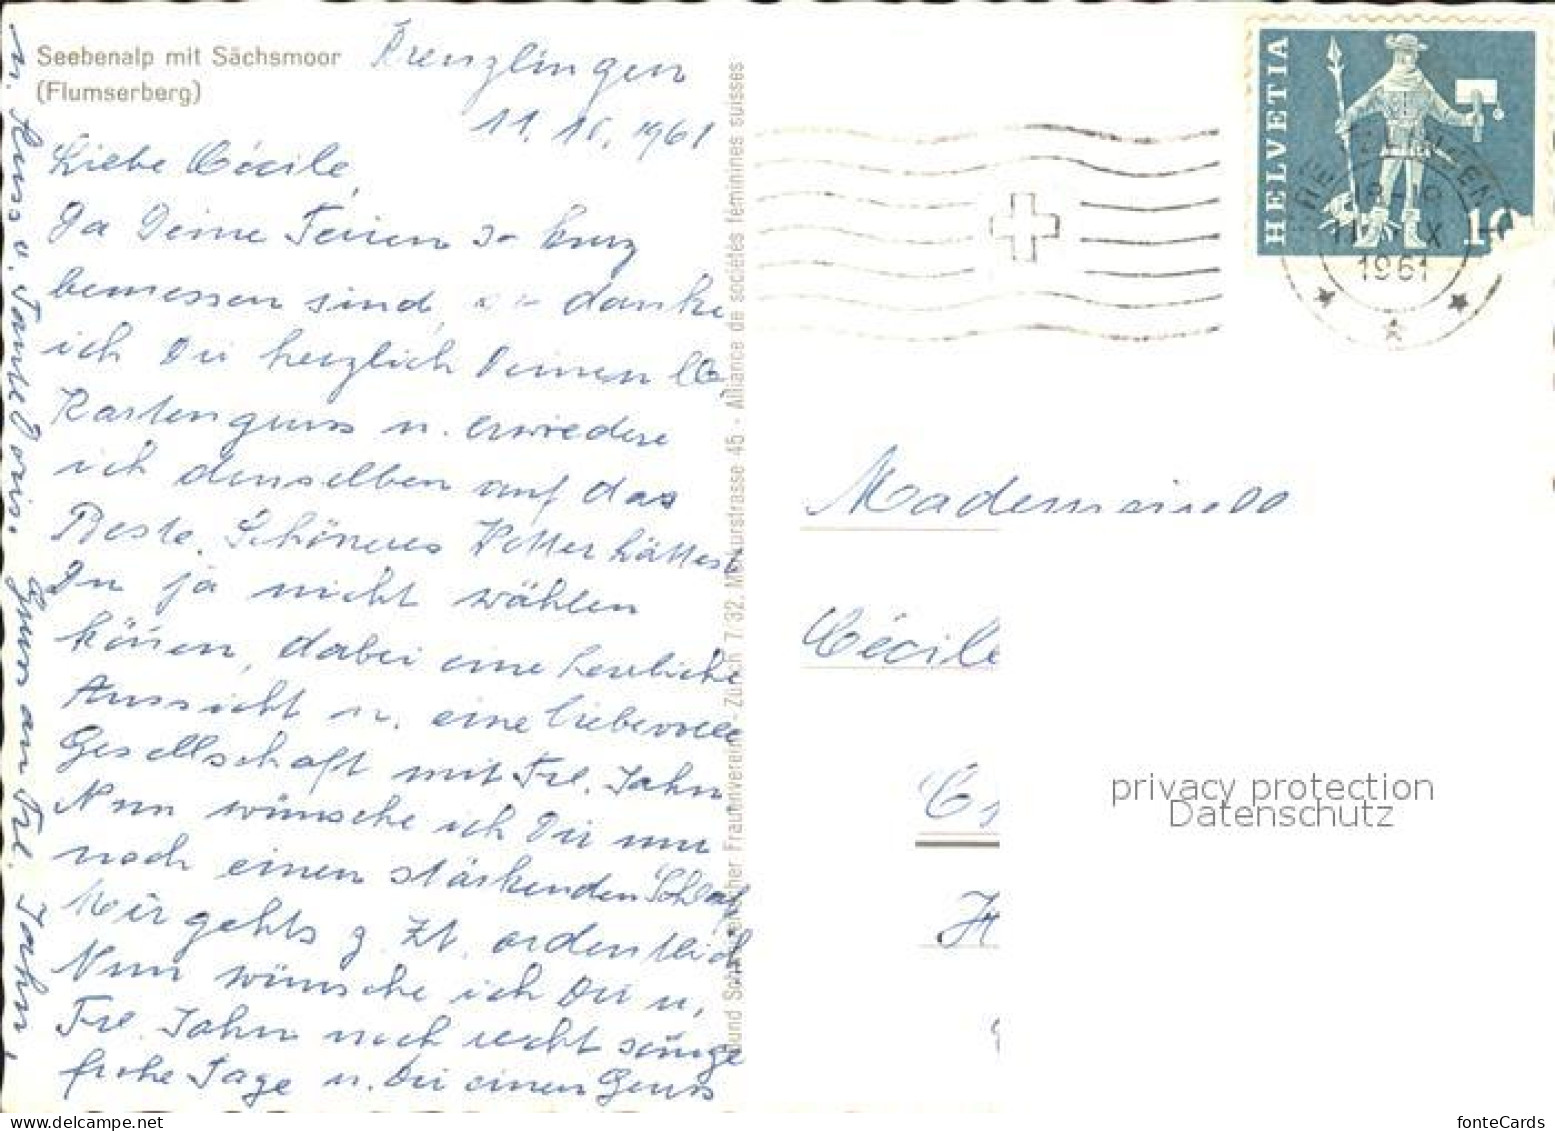 Seebenalp mit Sächsmoor
(Flumserberg)
Kreuzlingen
11. 1961
Liebe Cécile,
Da Deine Ferien so kurz
bemessen sind, danke
ich Dir herzlich Deinen lb.
Kartengruss u. erwiedere
ich denselben auf das
Beste. Schöneres Wetter hättest
Du ja nicht wählen
können, dabei eine herrliche
Aussicht u. eine liebevolle
Gesellschaft mit Frl. Jahn.
Nun wünsche ich Dir nur
noch einen stärkenden Schlaf
Mir gehts z. Zt. ordentlich
Nun wünsche ich Dir u.
Frl. Jahn noch recht sonnige
frohe Tage u. Dir einen Gruss
u. Kuss v. Tante Doris. Gruss an Frl. Jahn.
Bund Schweizerischer Frauenvereine - Zürich 7/32, Merkurstrasse 45 - Alliance de sociétés féminines suisses
HELVETIA
10
1961
Mademoiselle
Cécile
privacy protection
Datenschutz
www.delcampe.net
fonteCards